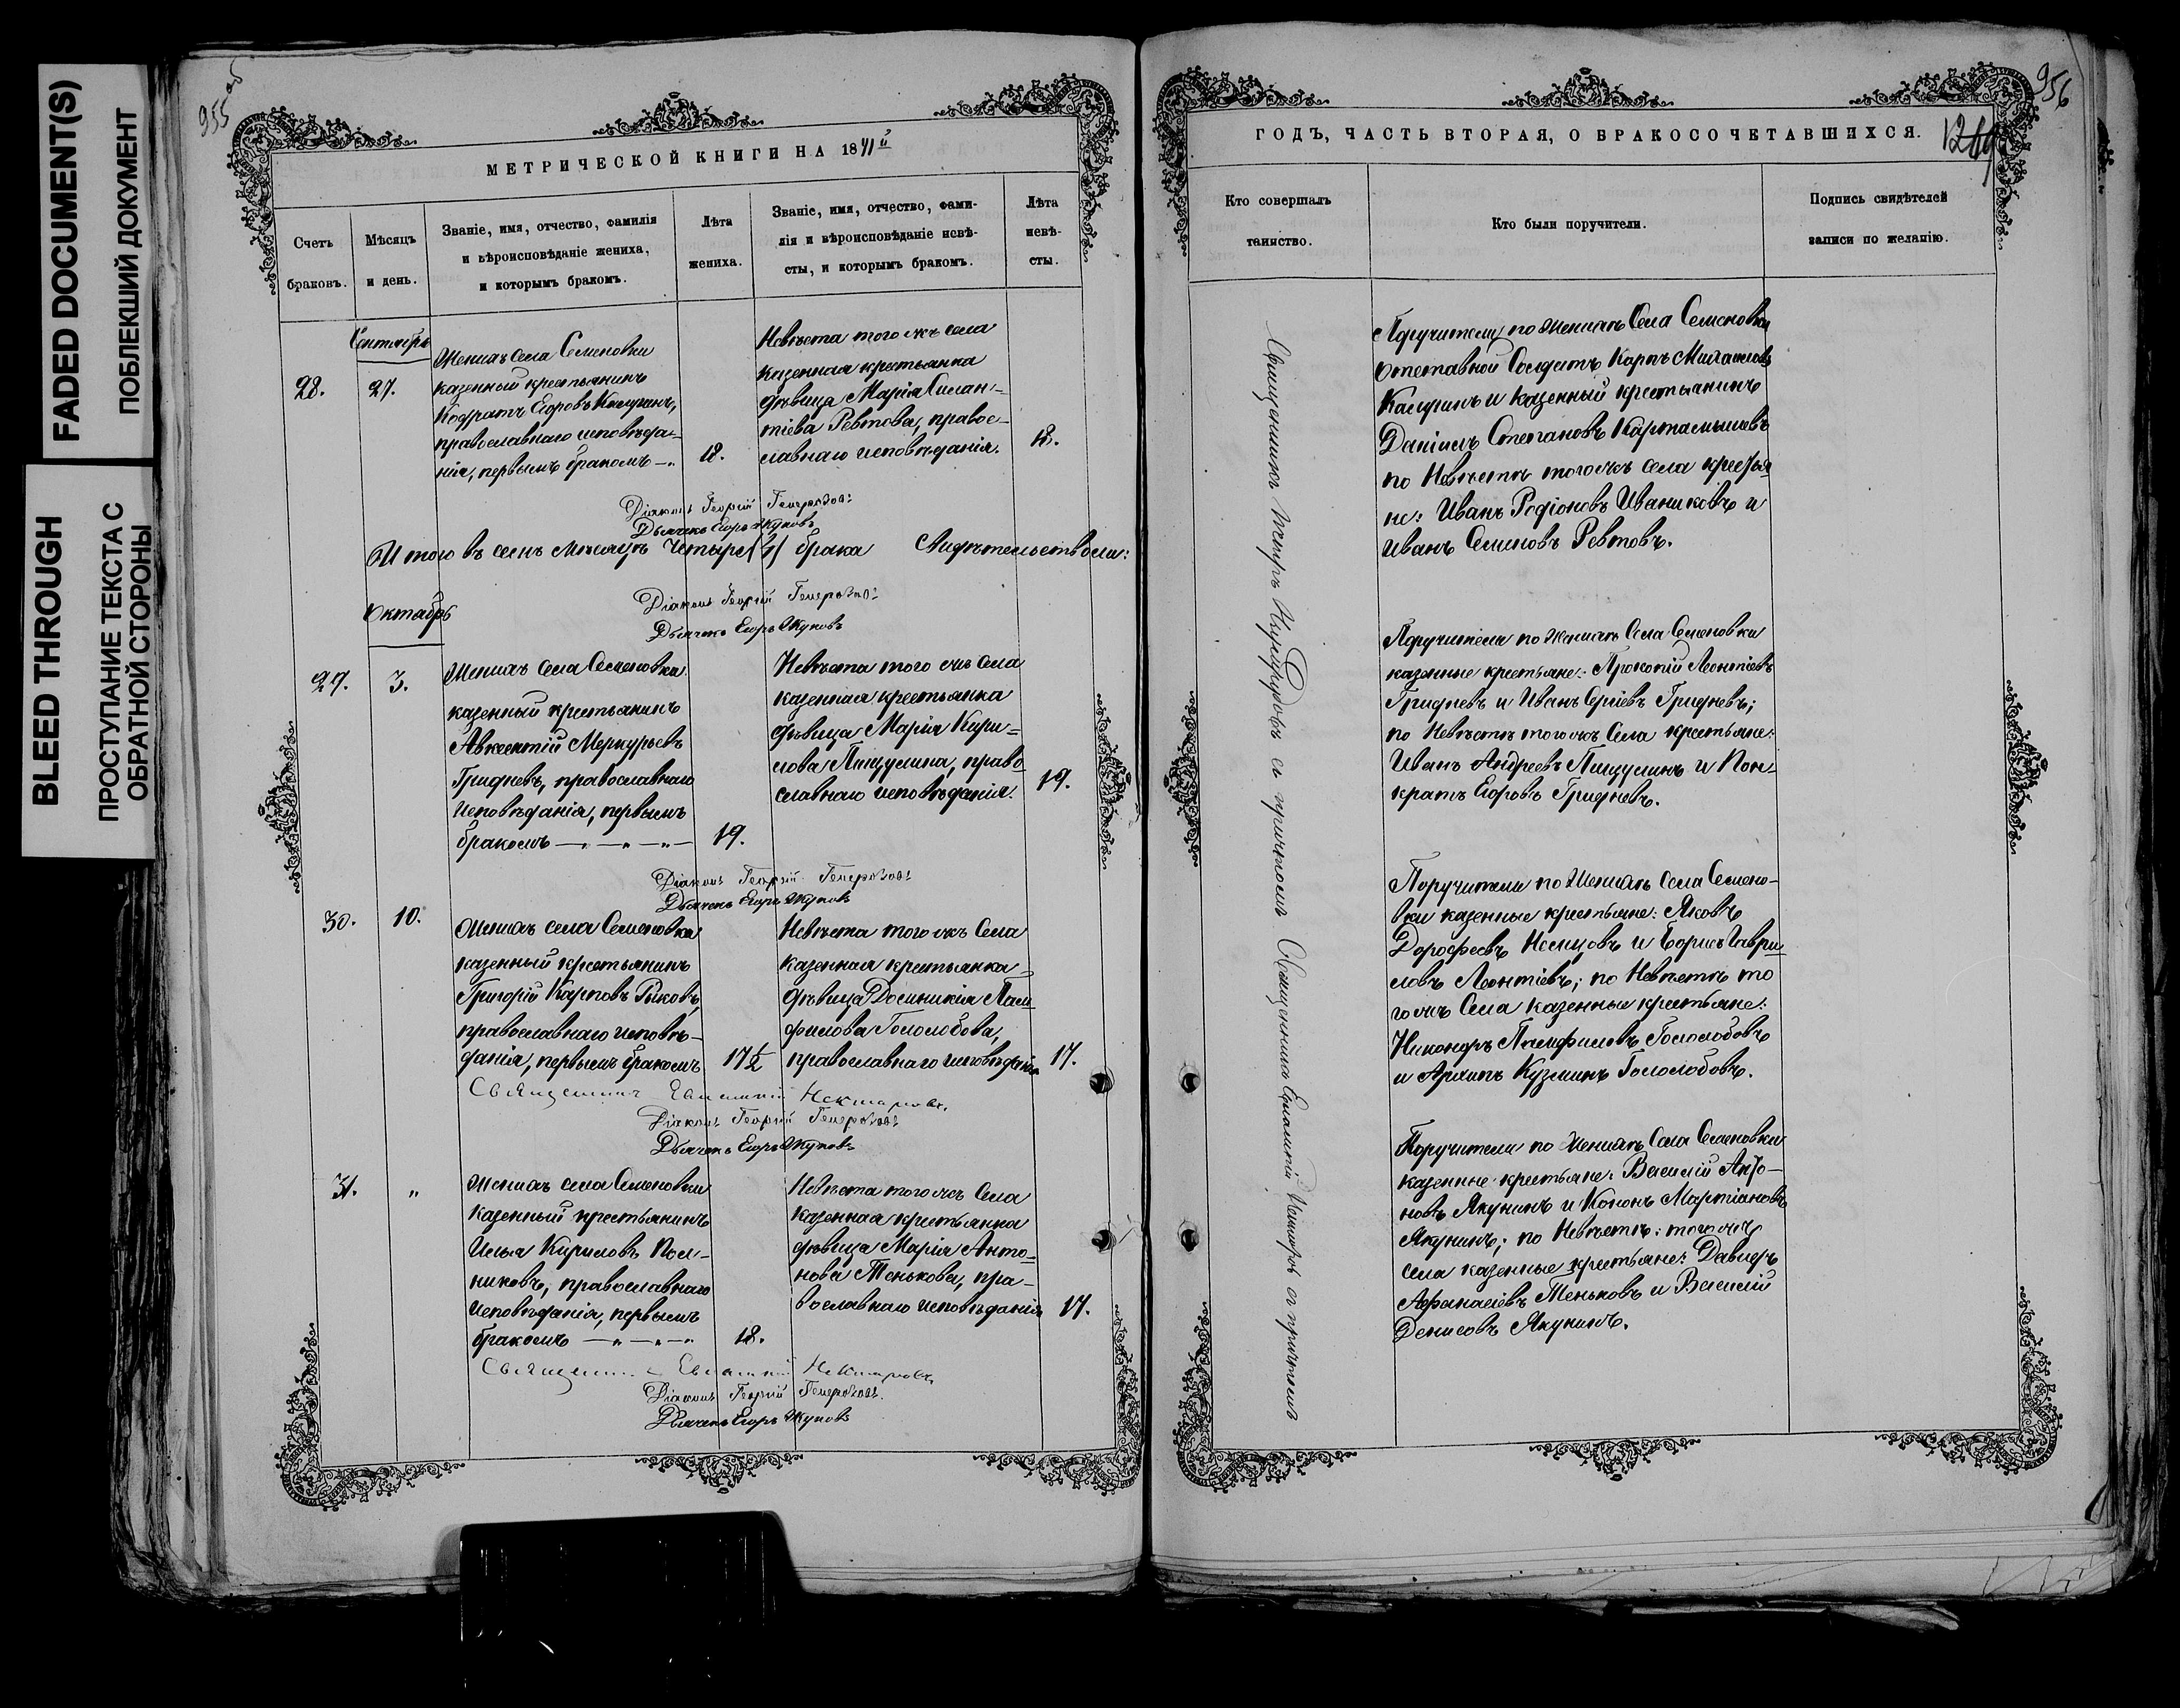 FADED DOCUMENT(S)
ПОБЛЕКШИЙ ДОКУМЕНТ
BLEED THROUGH
ПРОСТУПАНИЕ ТЕКСТА С
ОБРАТНОЙ СТОРОНЫ
955 об
МЕТРИЧЕСКОЙ КНИГИ НА 1871й
Счетъ браковъ.
Мѣсяцъ и день.
Званіе, имя, отчество, фамилія
и вѣроисповѣданіе жениха,
и которымъ бракомъ.
Лѣта жениха.
Званіе, имя, отчество, фами-
лія и вѣроисповѣданіе невѣ-
сты, и которымъ бракомъ.
Лѣта невѣ-
сты.
Сентябрь
28.
27.
Женихъ села Семеновки
казенный крестьянинъ
Кодратъ Егоровъ Калугинъ,
православнаго исповѣда-
нія, первымъ бракомъ
18.
Невѣста того жъ села
казенная крестьянка
дѣвица Марія Силан-
тіева Ревтова, правос-
лавнаго исповѣданія.
18.
Діаконъ Георгій
Дьячекъ Егоръ Жуковъ
Итого въ семъ мѣсяцѣ четыре (4) брака Свидѣтельствовали:
Діаконъ Георгій
Дьячекъ Егоръ Жуковъ
Октябрь
29.
3.
Женихъ Села Семеновки
казенный крестьянинъ
Авксентій Меркурьевъ
Гридневъ, православнаго
исповѣданія, первымъ
бракомъ
19.
Невѣста того жъ Села
казенная крестьянка
дѣвица Марія Кири-
лова Пищулина, право-
славнаго исповѣданія.
19.
Діаконъ Георгій
Дьячекъ Егоръ Жуковъ
30.
10.
Женихъ села Семеновки
казенный крестьянинъ
Григорій Карповъ Рыковъ,
православнаго исповѣ-
данія, первымъ бракомъ
17 1/2
Невѣста того жъ Села
казенная крестьянка
дѣвица Домникія Пам-
филова Гололобова,
православнаго исповѣданія
17.
Священникъ Евлампій Нектаровъ
Діаконъ Георгій
Дьячекъ Егоръ Жуковъ
31.
"
Женихъ села Семеновки
казенный крестьянинъ
Илья Кириловъ Пол-
никовъ, православнаго
исповѣданія, первымъ
бракомъ
18.
Невѣста того жъ Села
казенная крестьянка
дѣвица Марія Анто-
нова Тенькова, пра-
вославнаго исповѣданія
17.
Священникъ Евлампій Нектаровъ
Діаконъ Георгій
Дьячекъ Егоръ Жуковъ
956
ГОДЪ, ЧАСТЬ ВТОРАЯ, О БРАКОСОЧЕТАВШИХСЯ.
Кто совершалъ
таинство.
Кто были поручители.
Подпись свидѣтелей
записи по желанію.
Священникъ Петръ Никифоровъ съ причтомъ Священникъ Евлампій Нектаровъ съ причтомъ
Поручители по женихѣ Села Семеновки
отставной Солдатъ Карпъ Михайловъ
Калугинъ и казенный крестьянинъ
Даніилъ Степановъ Картамышевъ
по Невѣстѣ того жъ села крестья
не: Иванъ Родіоновъ Иваниковъ и
Иванъ Семеновъ Ревтовъ.
Поручители по женихѣ Села Семеновки
казенные крестьяне: Прокопій Леонтіевъ
Гридневъ и Иванъ Сергіевъ Гридневъ;
по Невѣстѣ того жъ Села крестьяне:
Иванъ Андреевъ Пищулинъ и Пон-
кратъ Егоровъ Гридневъ.
Поручители по женихѣ Села Семено-
вки казенные крестьяне: Яковъ
Дорофеевъ Немцовъ и Борисъ Гаври-
ловъ Леонтіевъ; по Невѣстѣ то
го жъ Села казенные крестьяне:
Никоноръ Памфиловъ Гололобовъ
и Архипъ Кузминъ Гололобовъ.
Поручители по женихѣ Села Семеновки
казенные крестьяне: Василій Анто-
новъ Якунинъ и Кононъ Мартіановъ
Якунинъ; по Невѣстѣ: того жъ
села казенные крестьяне: Давидъ
Афанасіевъ Теньковъ и Василій
Денисовъ Якунинъ.